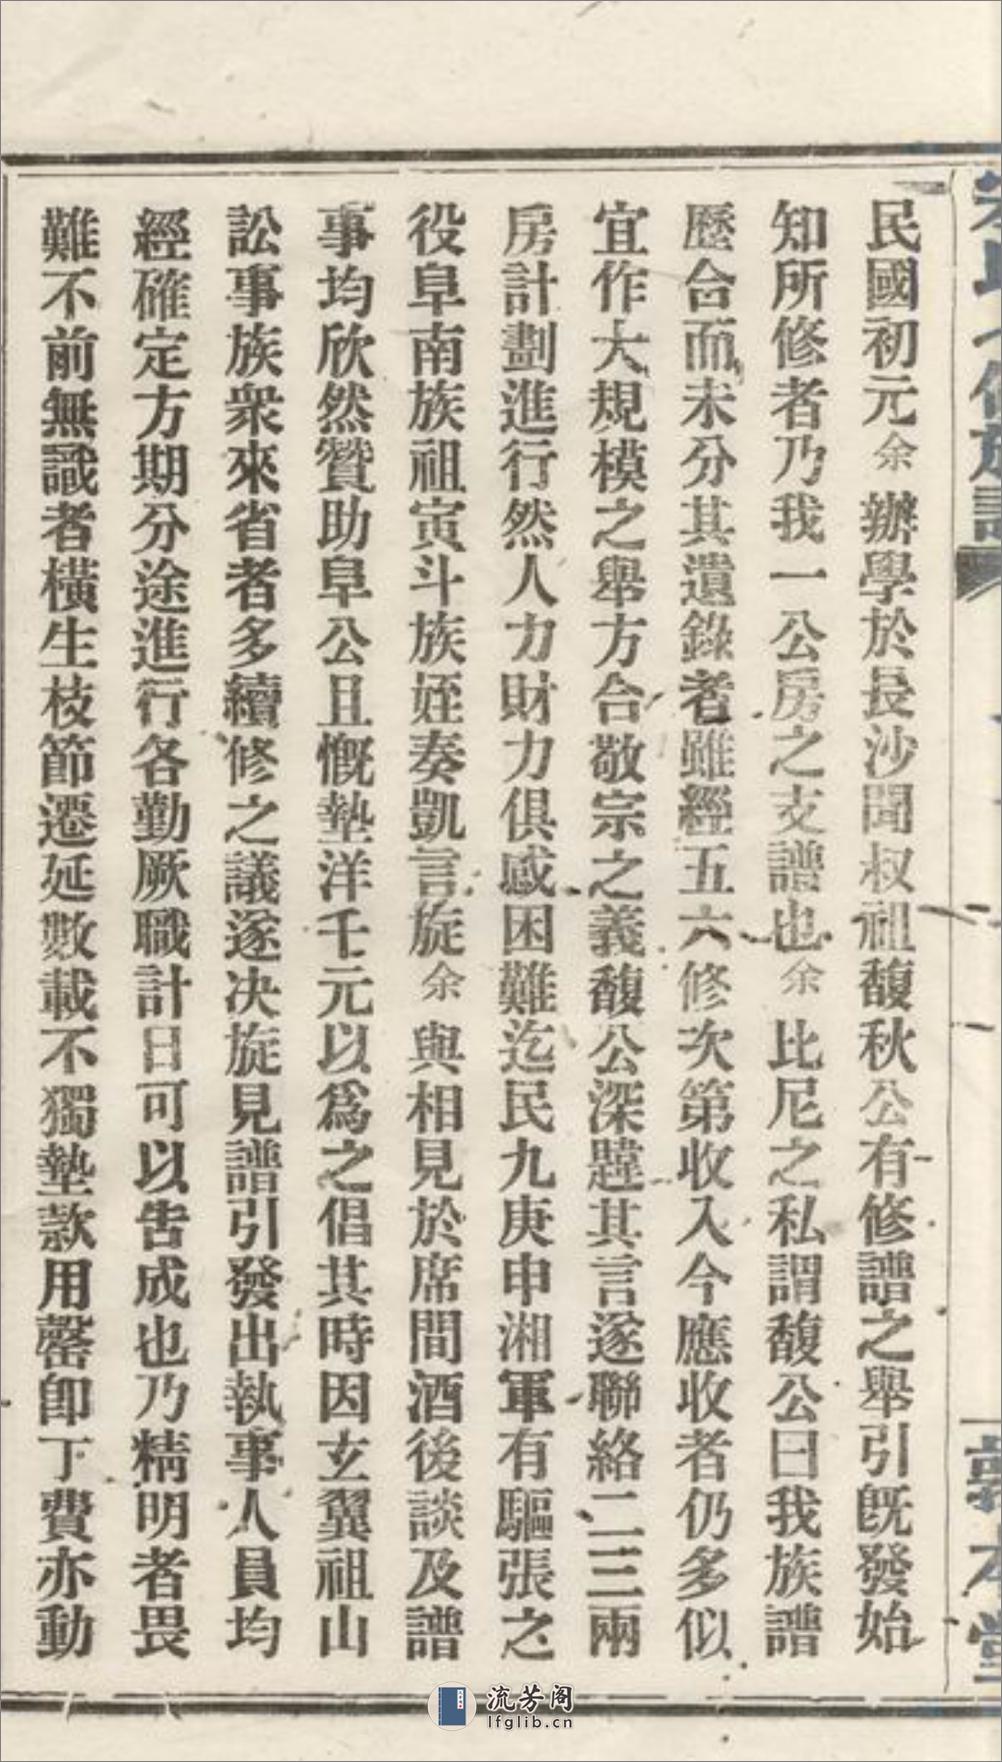 民國初元余辦學於長沙聞叔祖馥秋公有修譜之舉引旣發始
知所修者乃我一公房之支譜也余比尼之私謂馥公曰我族譜
歷合而未分其遺錄者雖經五六修次第收入今應收者仍多似
宜作大規模之舉方合敬宗之義馥公深韙其言遂聯絡二三兩
房計劃進行然人力財力俱感困難迄民九庚申湘軍有驅張之
役阜南族祖寅斗族姪奏凱言旋余與相見於席間酒後談及譜
事均欣然贊助阜公且慨墊洋千元以爲之倡其時因玄翼祖山
訟事族衆來省者多續修之議遂决旋見譜引發出執事人員均
經確定方期分途進行各勤厥職計日可以告成也乃精明者畏
難不前無識者橫生枝節遷延數載不獨墊款用罄卽丁費亦動
流芳阁
lfglib.cn